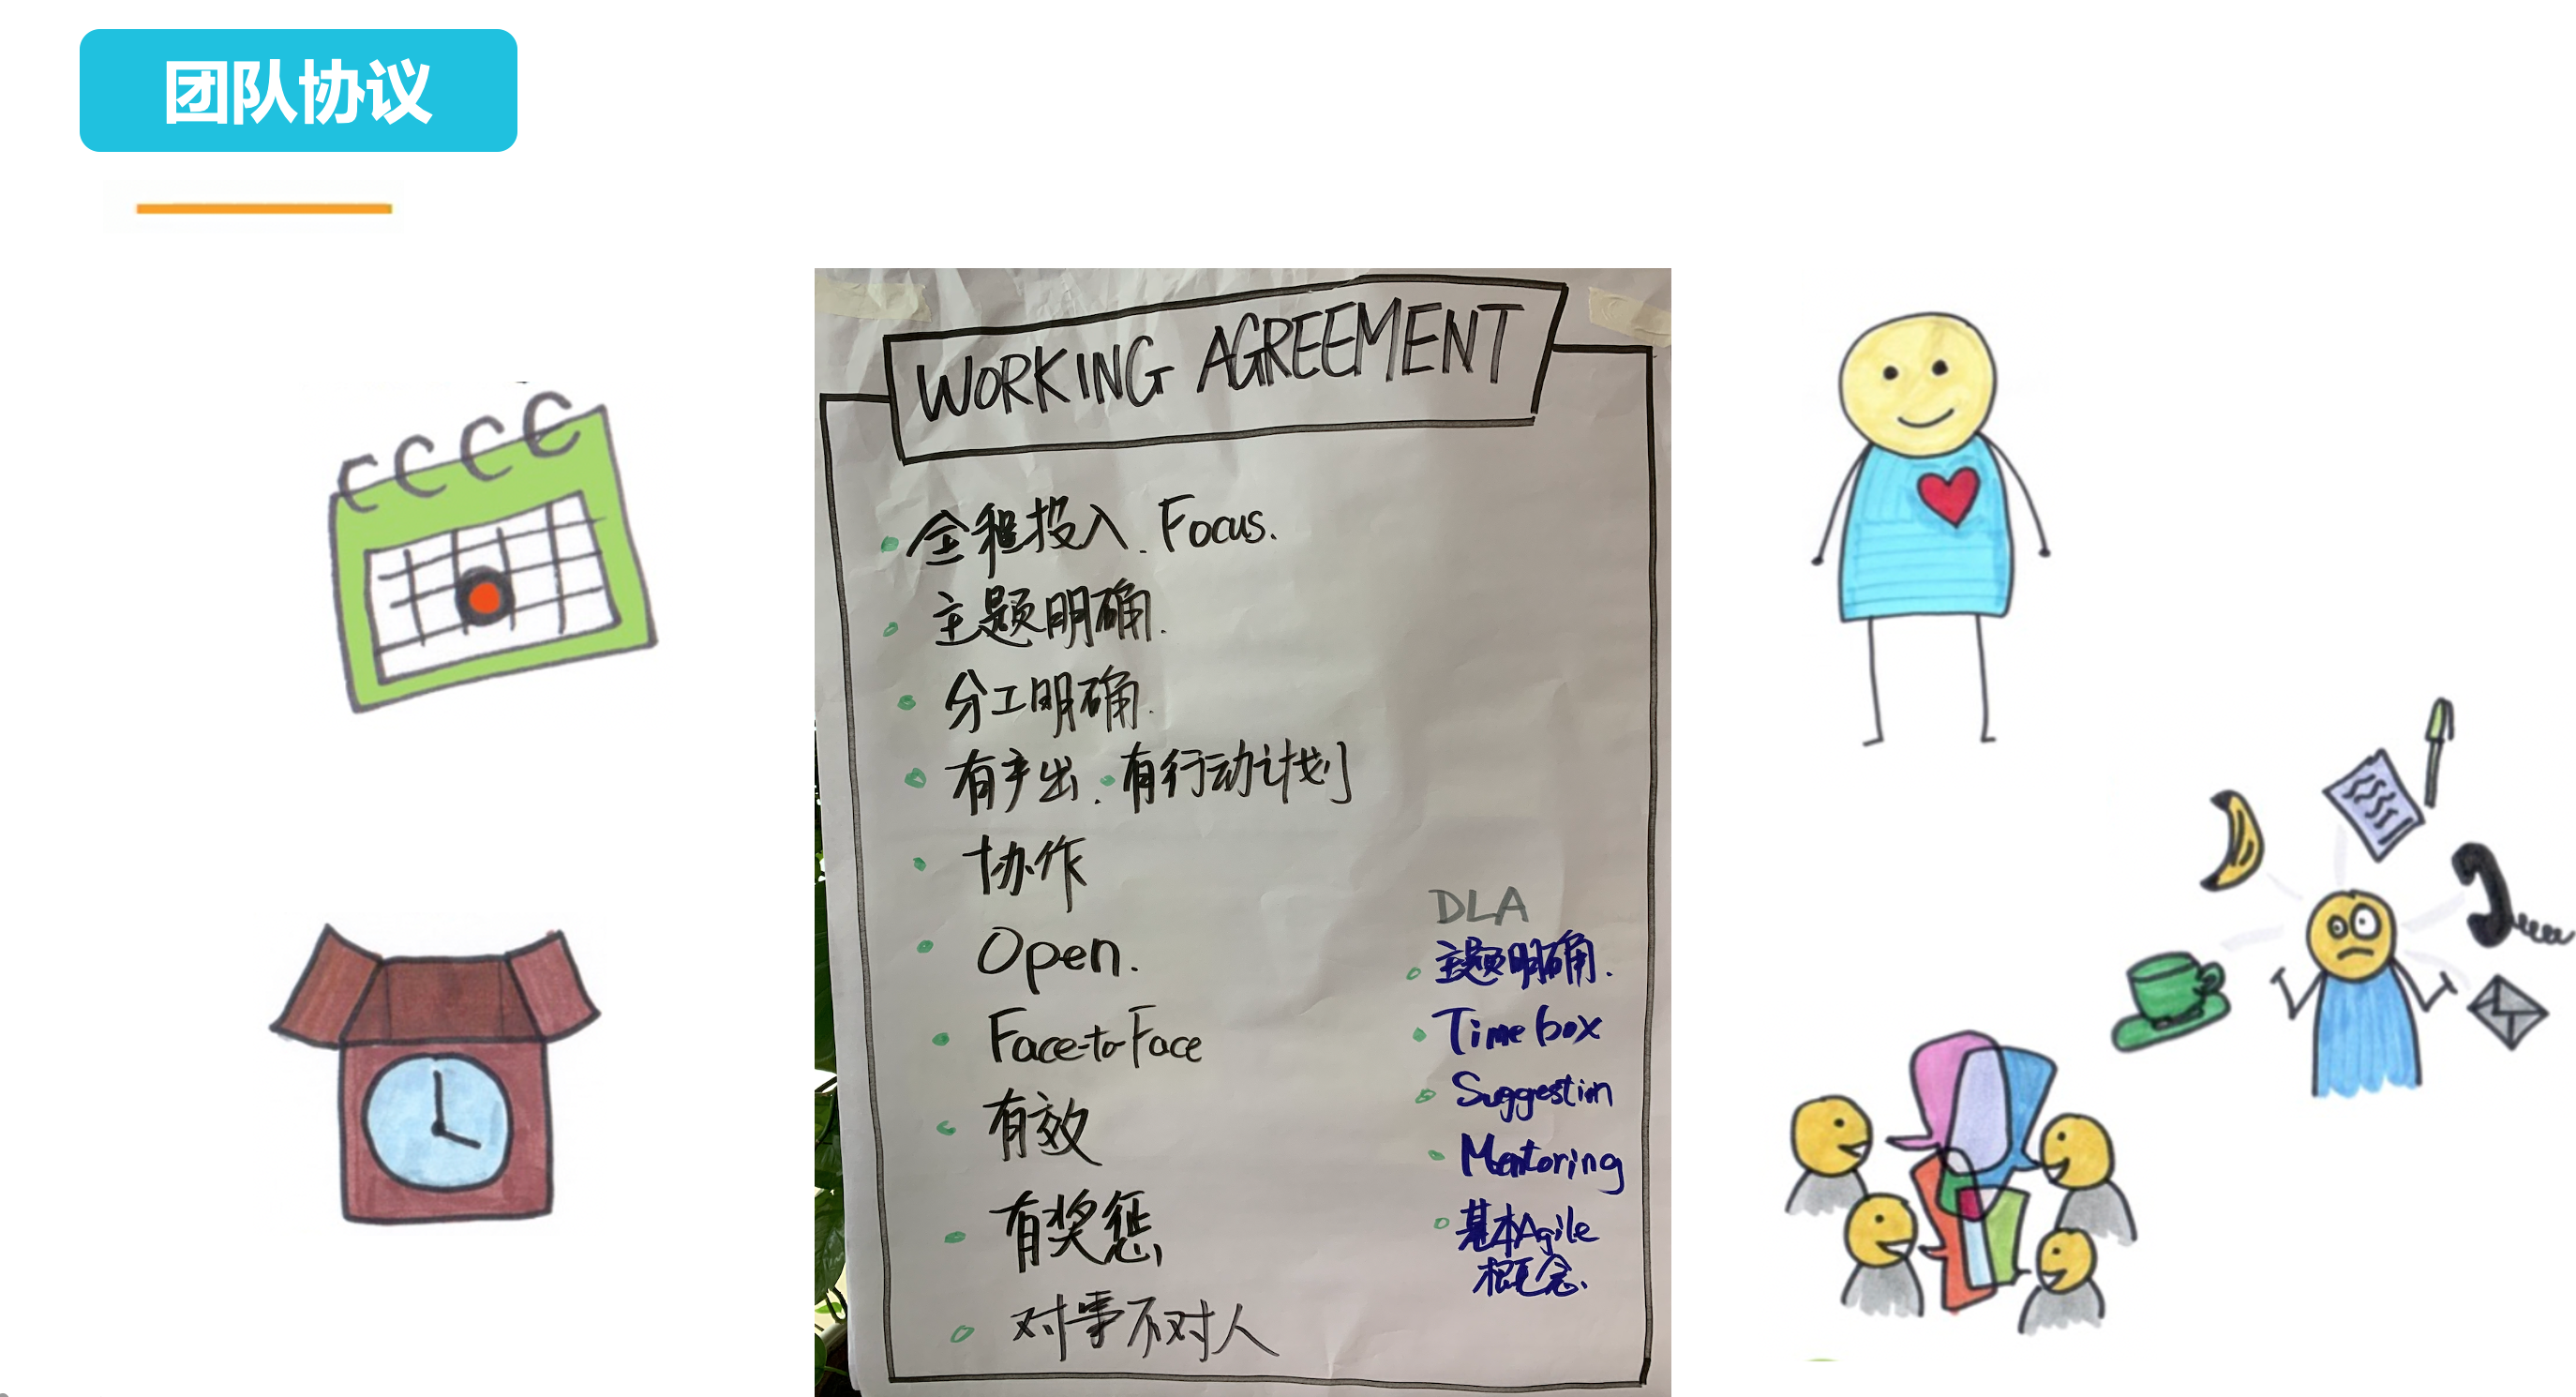 团队协议
WORKING AGREEMENT
全程投入. Focus.
主题明确.
分工明确.
有产出. 有行动计划
协作
Open.
Face-to-Face
有效
有奖惩
对事不对人
DLA
主题明确.
Time box
Suggestion
Mentoring
基本Agile
概念.